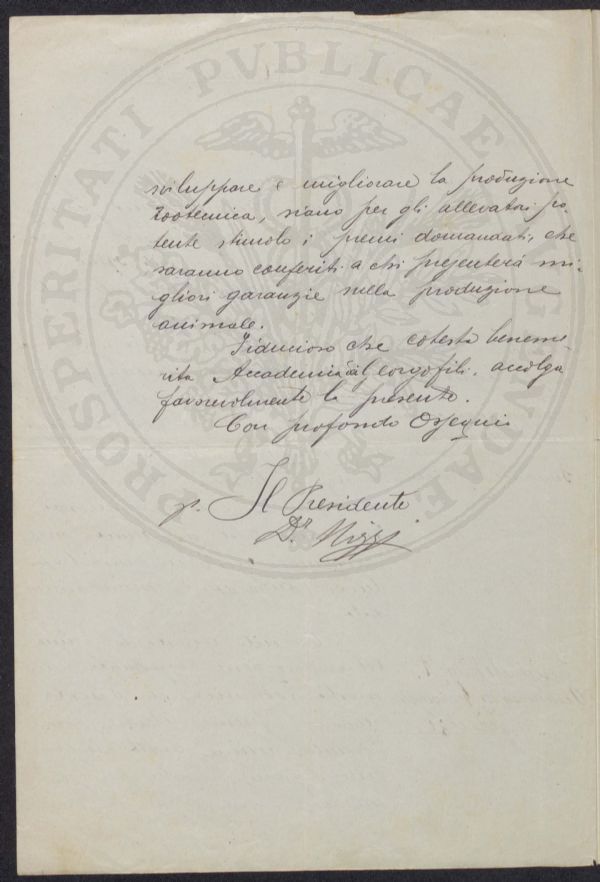 PROSPERITATI PVBLICAE AVGENDAE
sviluppare e migliorare la produzione
zootecnica, siano per gli allevatori po-
tente stimolo i premi domandati, che
saranno conferiti a chi presenterà mi-
gliori garanzie nella produzione
animale.
Fiducioso che cotesta beneme-
rita Accademia dei Georgofili, accolga
favorevolmente la presente.
Con profondo Ossequio
p. Il Presidente
Dr.